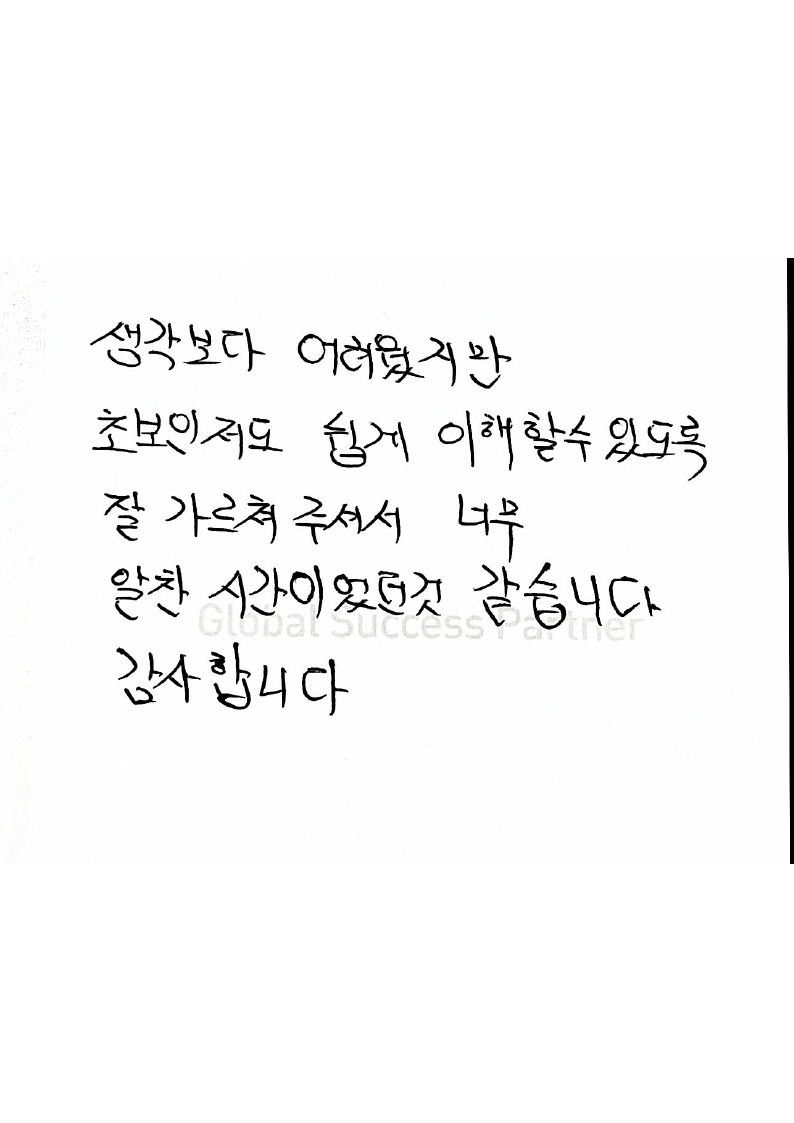 생각보다 어려웠지만
초보인저도 쉽게 이해할수있도록
잘 가르쳐주셔서 너무
알찬 시간이었던것 같습니다
Global Success Partner
감사합니다